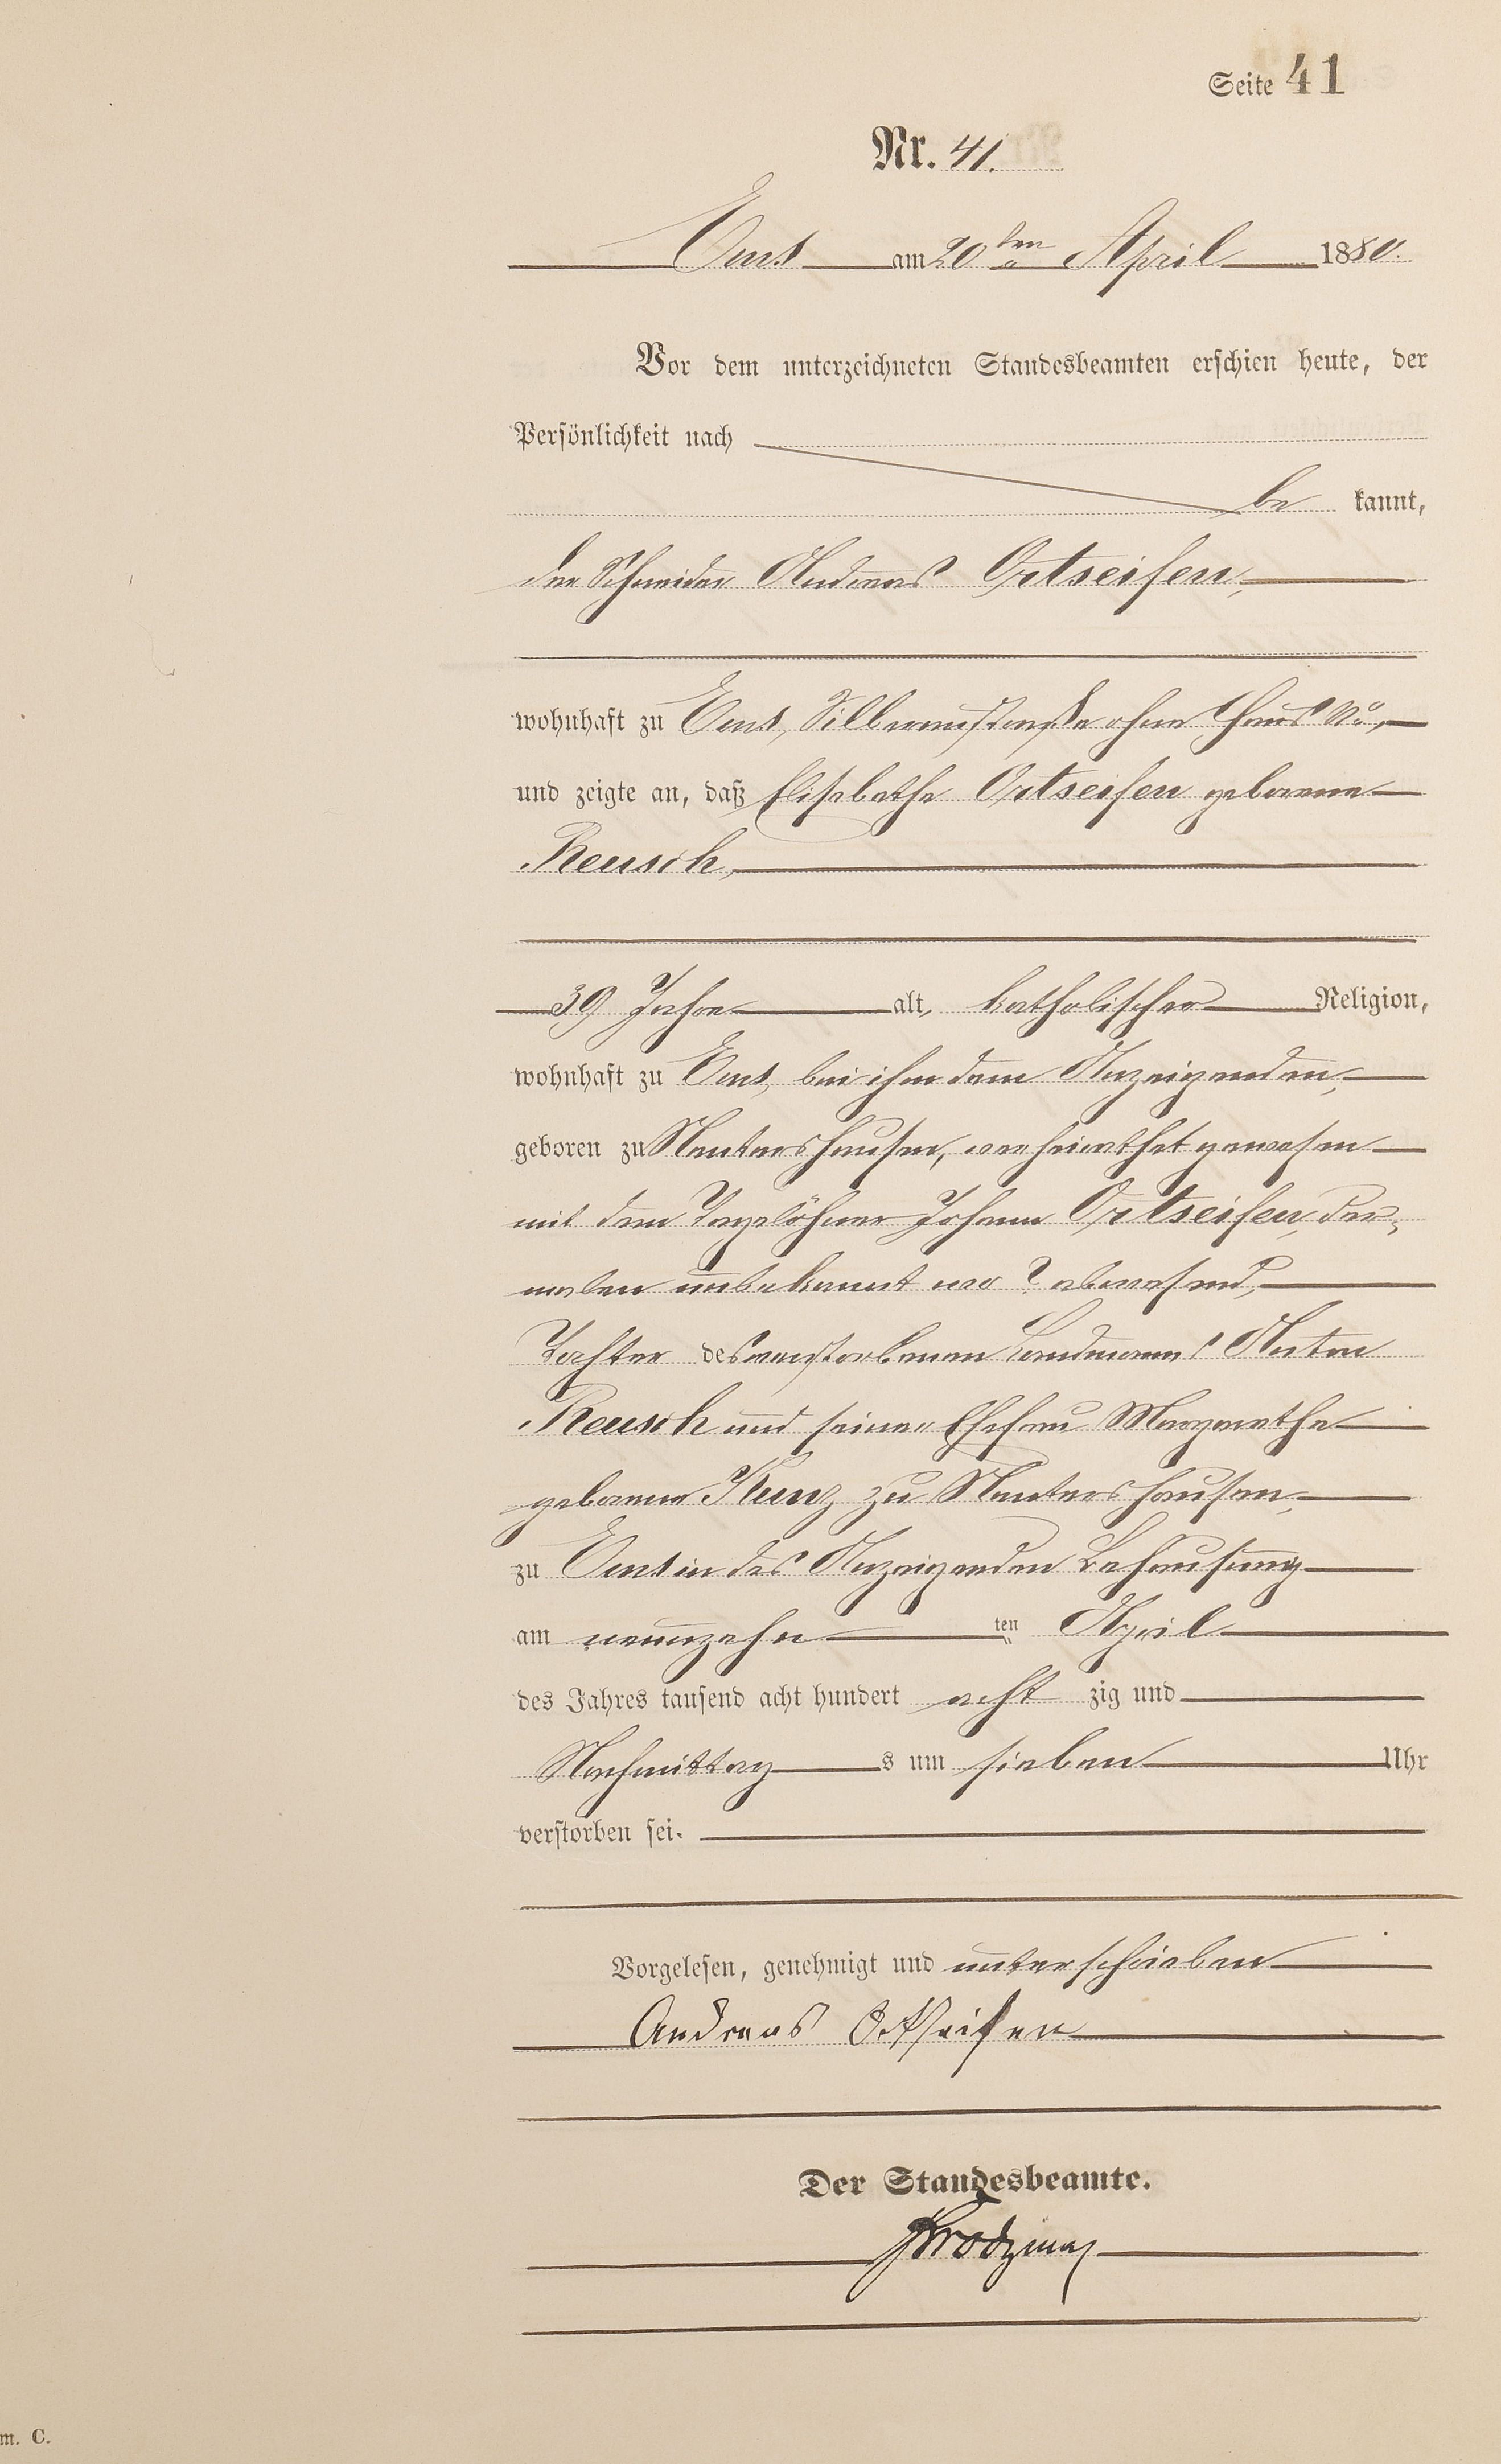 Seite 41
Nr. 41.
Ems am 20ten April 1880.
Vor dem unterzeichneten Standesbeamten erschien heute, der
Persönlichkeit nach
be kannt,
der Schneider Andreas Ortseifen,
wohnhaft zu Ems, Silberaustraße ohne Haus No,
und zeigte an, daß Elisabethe Ortseifen geborene
Reusch,
39 Jahre alt, katholischer Religion,
wohnhaft zu Ems, bei ihm dem Anzeigenden,
geboren zu Nentershausen, verheirathet gewesen
mit dem Tagelöhner Johann Ortseifen, der-
malen unbekannt wo? abwesend,
Tochter des verstorbenen Landmanns Anton
Reusch und seiner Ehefrau Margarethe
geborene Kunz zu Nentershausen,
zu Ems in des Anzeigenden Behausung
am neunzehn ten April
des Jahres tausend acht hundert acht zig und
Nachmittag s um sieben Uhr
verstorben sei.
Vorgelesen, genehmigt und unterschrieben
Andreas Ortseifen
Der Standesbeamte.
m. C.